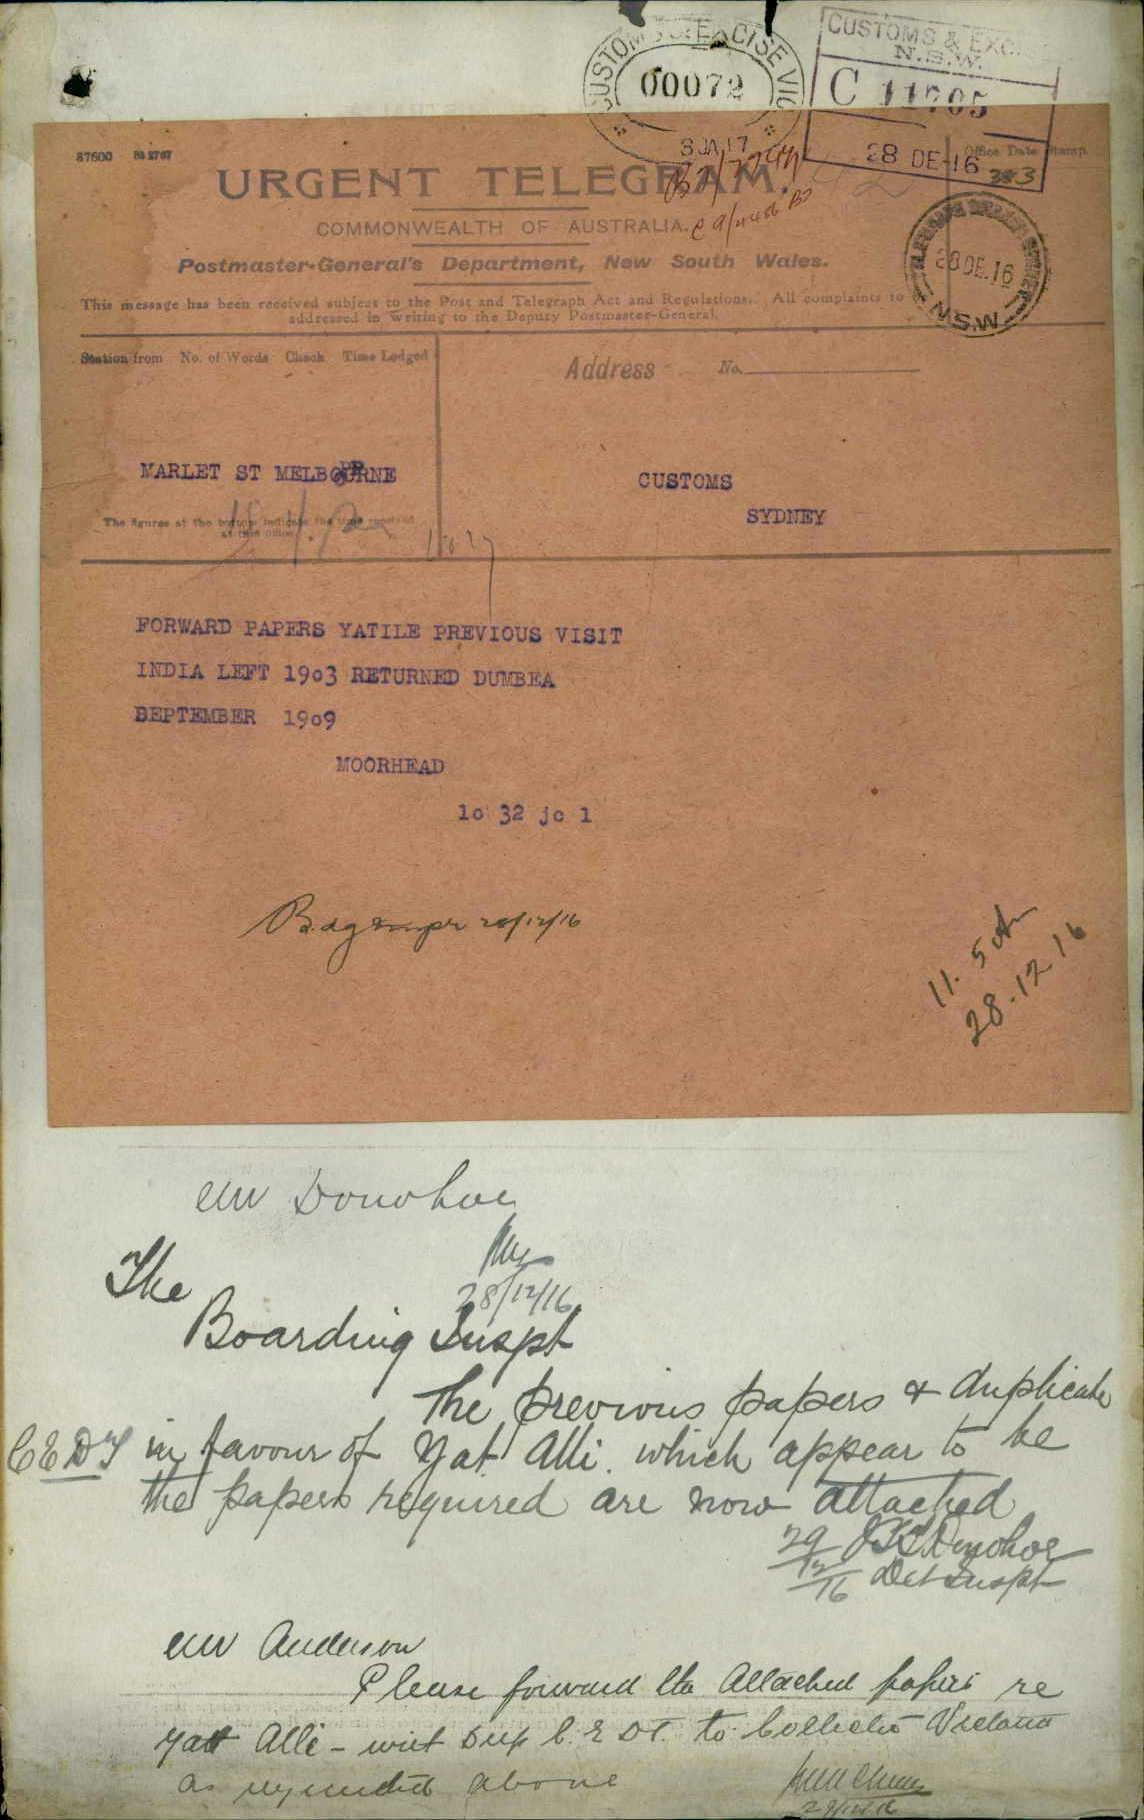 CUSTOMS & EXCISE VIC
00072
8 JA 17
CUSTOMS & EXC
N.S.W.
C 11705
28 DE-16
87600
URGENT TELEGRAM.
Office Date Stamp
COMMONWEALTH OF AUSTRALIA.
Postmaster-General's Department, New South Wales.
28 DE.16
N.S.W
This message has been received subject to the Post and Telegraph Act and Regulations. All complaints to
addressed in writing to the Deputy Postmaster-General.
Station from No. of Words Check Time Lodged
Address No.
MARLET ST MELBOURNE
CUSTOMS
SYDNEY
The figures at the bottom indicate the time received
at this office
FORWARD PAPERS YATILE PREVIOUS VISIT
INDIA LEFT 19o3 RETURNED DUMBEA
SEPTEMBER 19o9
MOORHEAD
1o 32 jc 1
28/12/16
11.5
28.12.16
Mr Donohoe
28/12/16
The
Boarding Inspt
The previous papers & duplicate
C E D T in favour of Yat Alli. which appear to be
the papers required are now attached
29/12/16 Donohoe
Det Inspt
Mr Anderson
Please forward the attached papers re
Yatt Alli - with Dup C. E DT. to Collector Victoria
as requested above
29/12/16